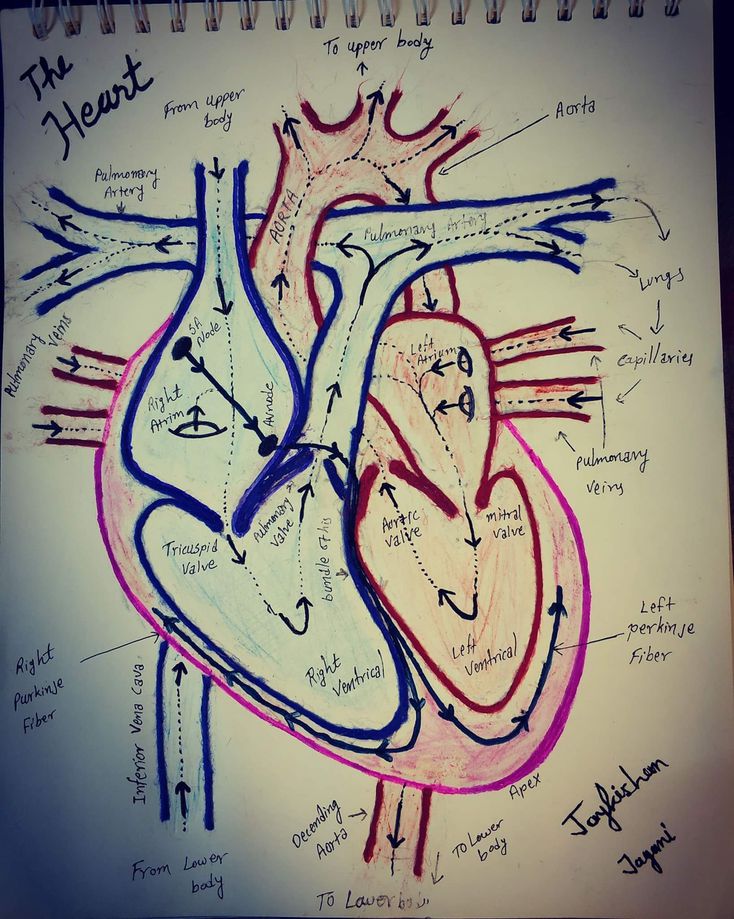 The
Heart
To upper body
From upper
body
Aorta
Pulmonary
Artery
AORTA
Pulmonary Artery
Lungs
Pulmonary Veins
SA
Node
Left
Atrium
capillaries
Right
Atrim
AVnode
Pulmonary
Veins
Pulmonary
valve
Aortic
valve
mitral
valve
Tricuspid
Valve
bundle of his
Left
perkinje
Fiber
Right
Purkinje
Fiber
Right
Ventrical
Left
Ventrical
Inferior Vena Cava
Apex
Decending
Aorta
To Lower
body
From Lower
body
To Lower body
Jaykishan
Jagani